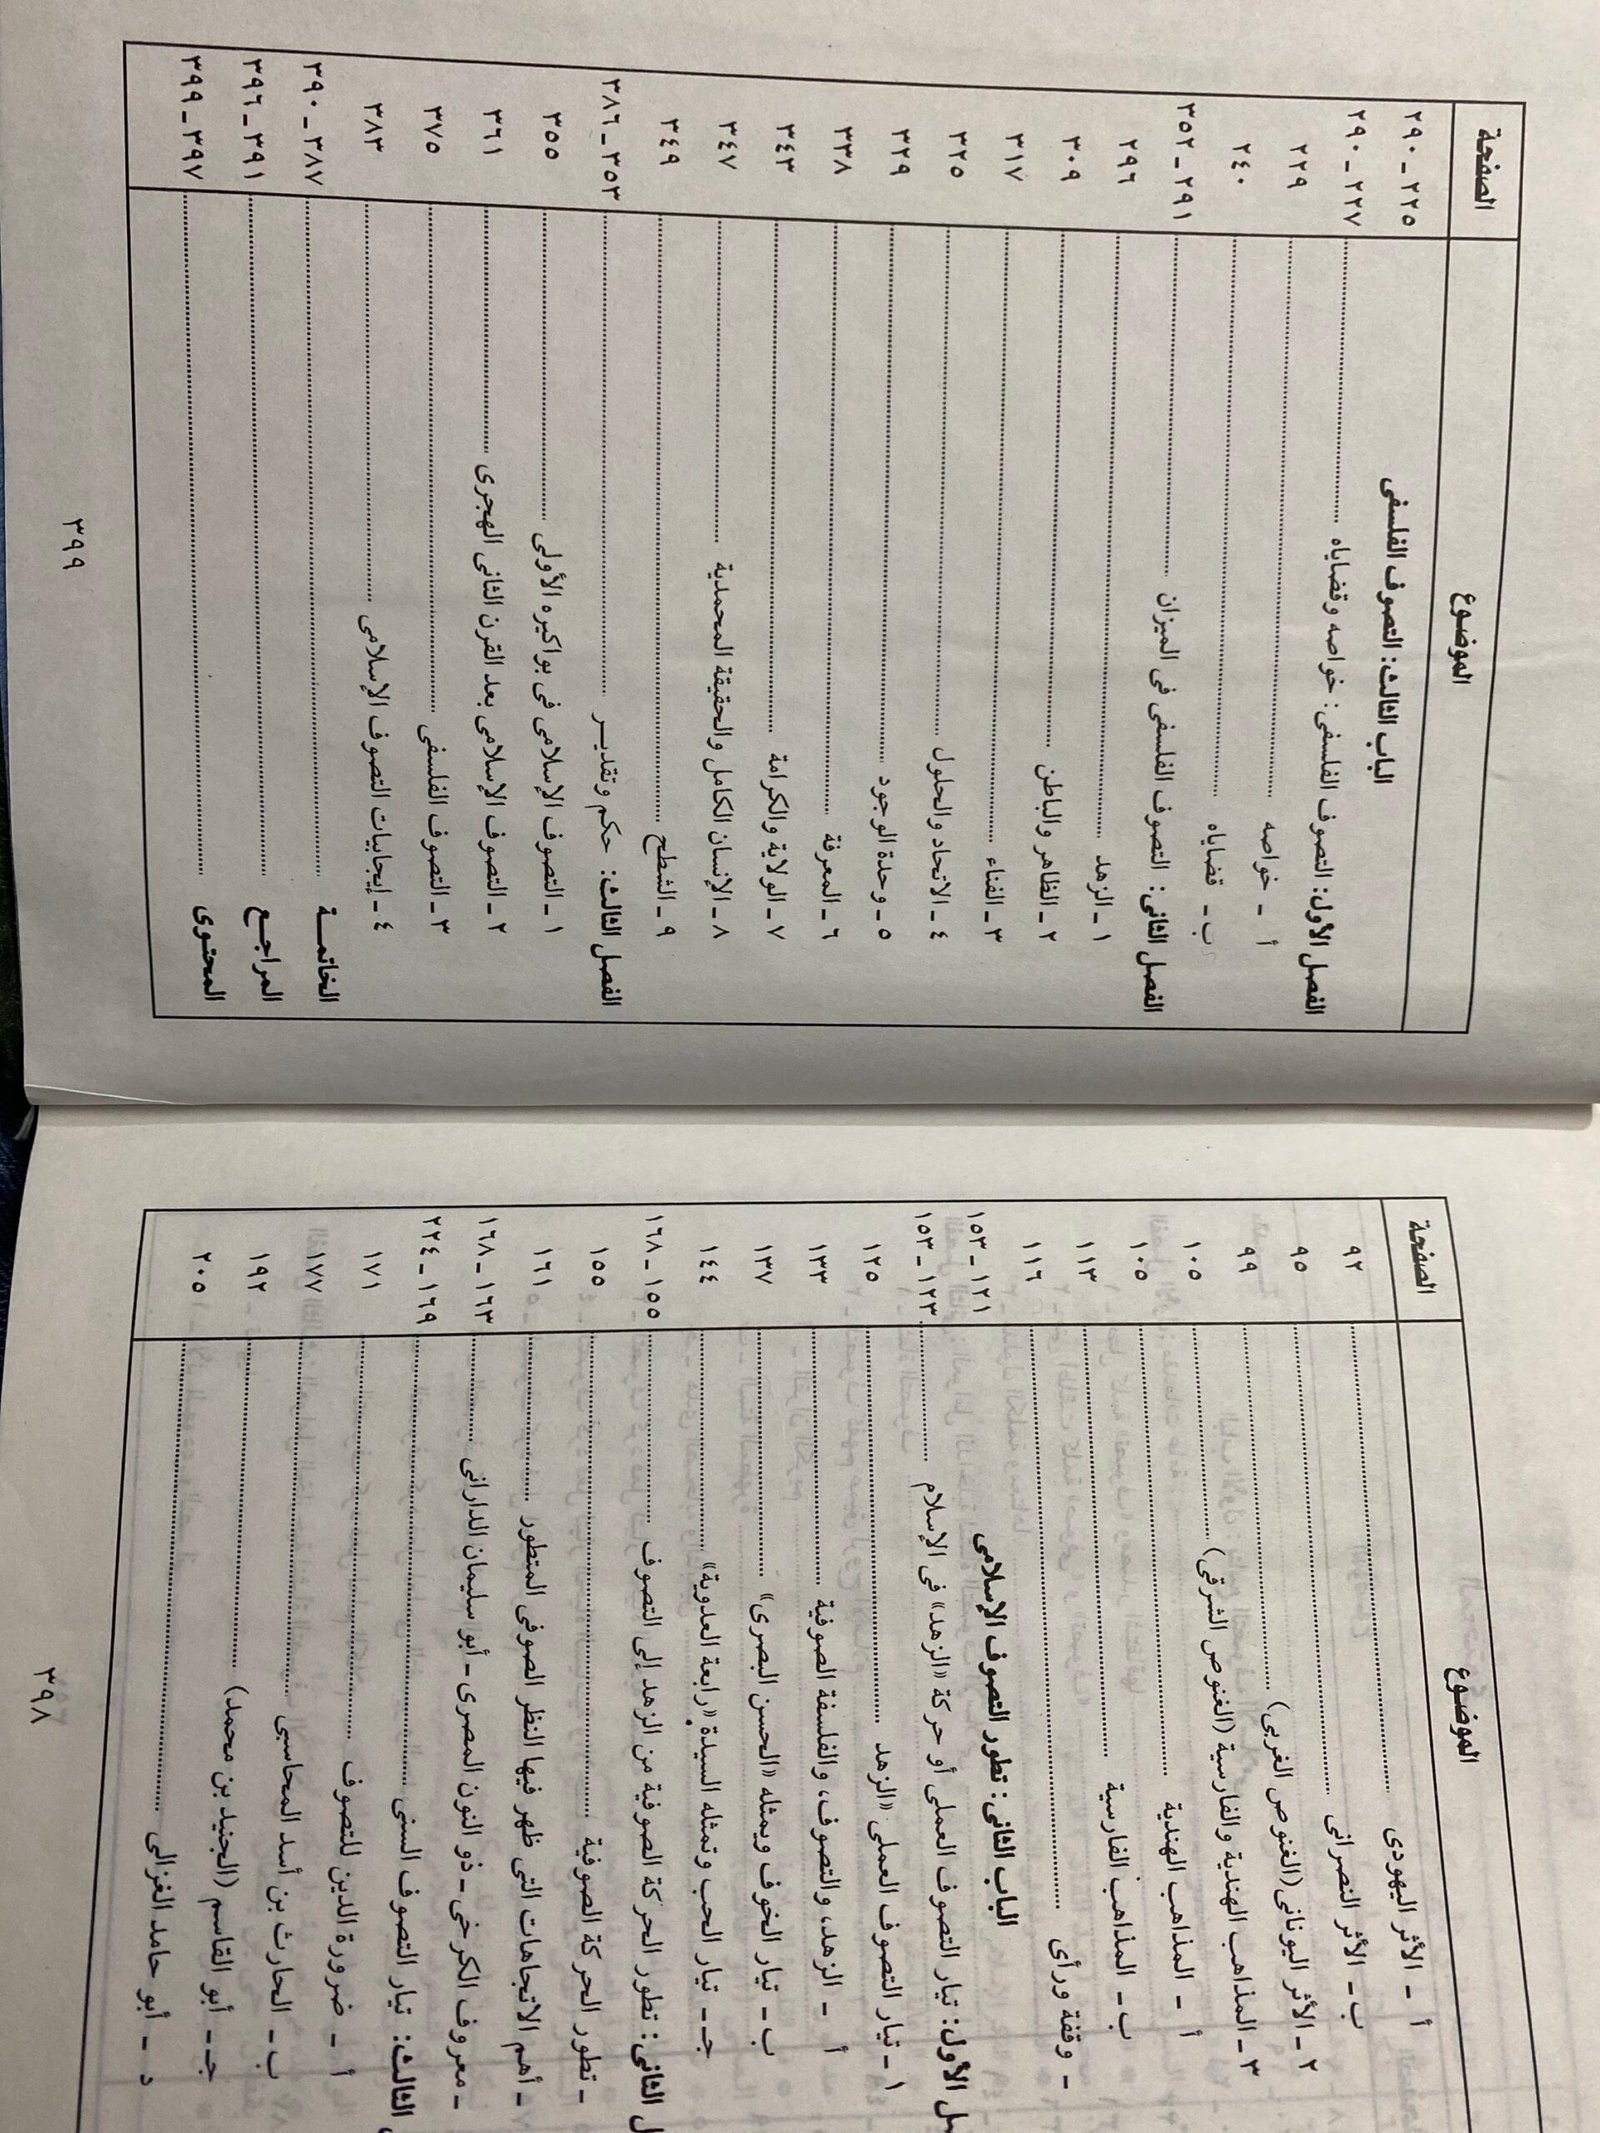 الموضوع الصفحة
أ - الأثر اليهودى ٩٢
ب - الأثر النصرانى ٩٥
٢ - الأثر اليونانى (الغنوص الغربى) ٩٩
٣ - المذاهب الهندية والفارسية (الغنوص الشرقى) ١٠٥
أ - المذاهب الهندية ١٠٥
ب - المذاهب الفارسية ١١٣
- وقفة ورأى ١١٦
الباب الثانى: تطور التصوف الإسلامى ١٢١ - ١٥٣
الأول: تيار التصوف العملى أو حركة «الزهد» فى الإسلام ١٢٣ - ١٥٣
١ - تيار التصوف العملى «الزهد ١٢٥
أ - الزهد، والتصوف، والفلسفة الصوفية ١٣٣
ب - تيار الخوف ويمثله «الحسن البصرى» ١٣٧
جـ - تيار الحب وتمثله السيدة «رابعة العدوية» ١٤٤
الثانى: تطور الحركة الصوفية من الزهد إلى التصوف ١٥٥ - ١٦٨
- تطور الحركة الصوفية ١٥٥
- أهم الاتجاهات التى ظهر فيها النظر الصوفى المتطور ١٦١
- معروف الكرخى - ذو النون المصرى - أبو سليمان الدارانى ١٦٣ - ١٦٨
الثالث: تيار التصوف السنى ١٦٩ - ٢٢٤
أ - ضرورة الدين للتصوف ١٧١
ب - الحارث بن أسد المحاسبى ١٧٧
جـ - أبو القاسم (الجنيد بن محمد) ١٩٢
د - أبو حامد الغزالى ٢٠٥
٣٩٨
الموضوع الصفحة
الباب الثالث: التصوف الفلسفى ٢٢٥ - ٢٩٠
الفصل الأول: التصوف الفلسفى: خواصه وقضاياه ٢٢٧ - ٢٩٠
أ - خواصه ٢٢٩
ب - قضاياه ٢٤٠
الفصل الثانى: التصوف الفلسفى فى الميزان ٢٩١ - ٣٥٢
١ - الزهد ٢٩٦
٢ - الظاهر والباطن ٣٠٩
٣ - الفناء ٣١٧
٤ - الاتحاد والحلول ٣٢٥
٥ - وحدة الوجود ٣٢٩
٦ - المعرفة ٣٣٨
٧ - الولاية والكرامة ٣٤٣
٨ - الإنسان الكامل والحقيقة المحمدية ٣٤٧
٩ - الشطح ٣٤٩
الفصل الثالث: حكم وتقديــر ٣٥٣ - ٣٨٦
١ - التصوف الإسلامى فى بواكيره الأولى ٣٥٥
٢ - التصوف الإسلامى بعد القرن الثانى الهجرى ٣٦١
٣ - التصوف الفلسفى ٣٧٥
٤ - إيجابيات التصوف الإسلامى ٣٨٣
الخاتمــة ٣٨٧ - ٣٩٠
المراجـع ٣٩١ - ٣٩٦
المحتوى ٣٩٧ - ٣٩٩
٣٩٩